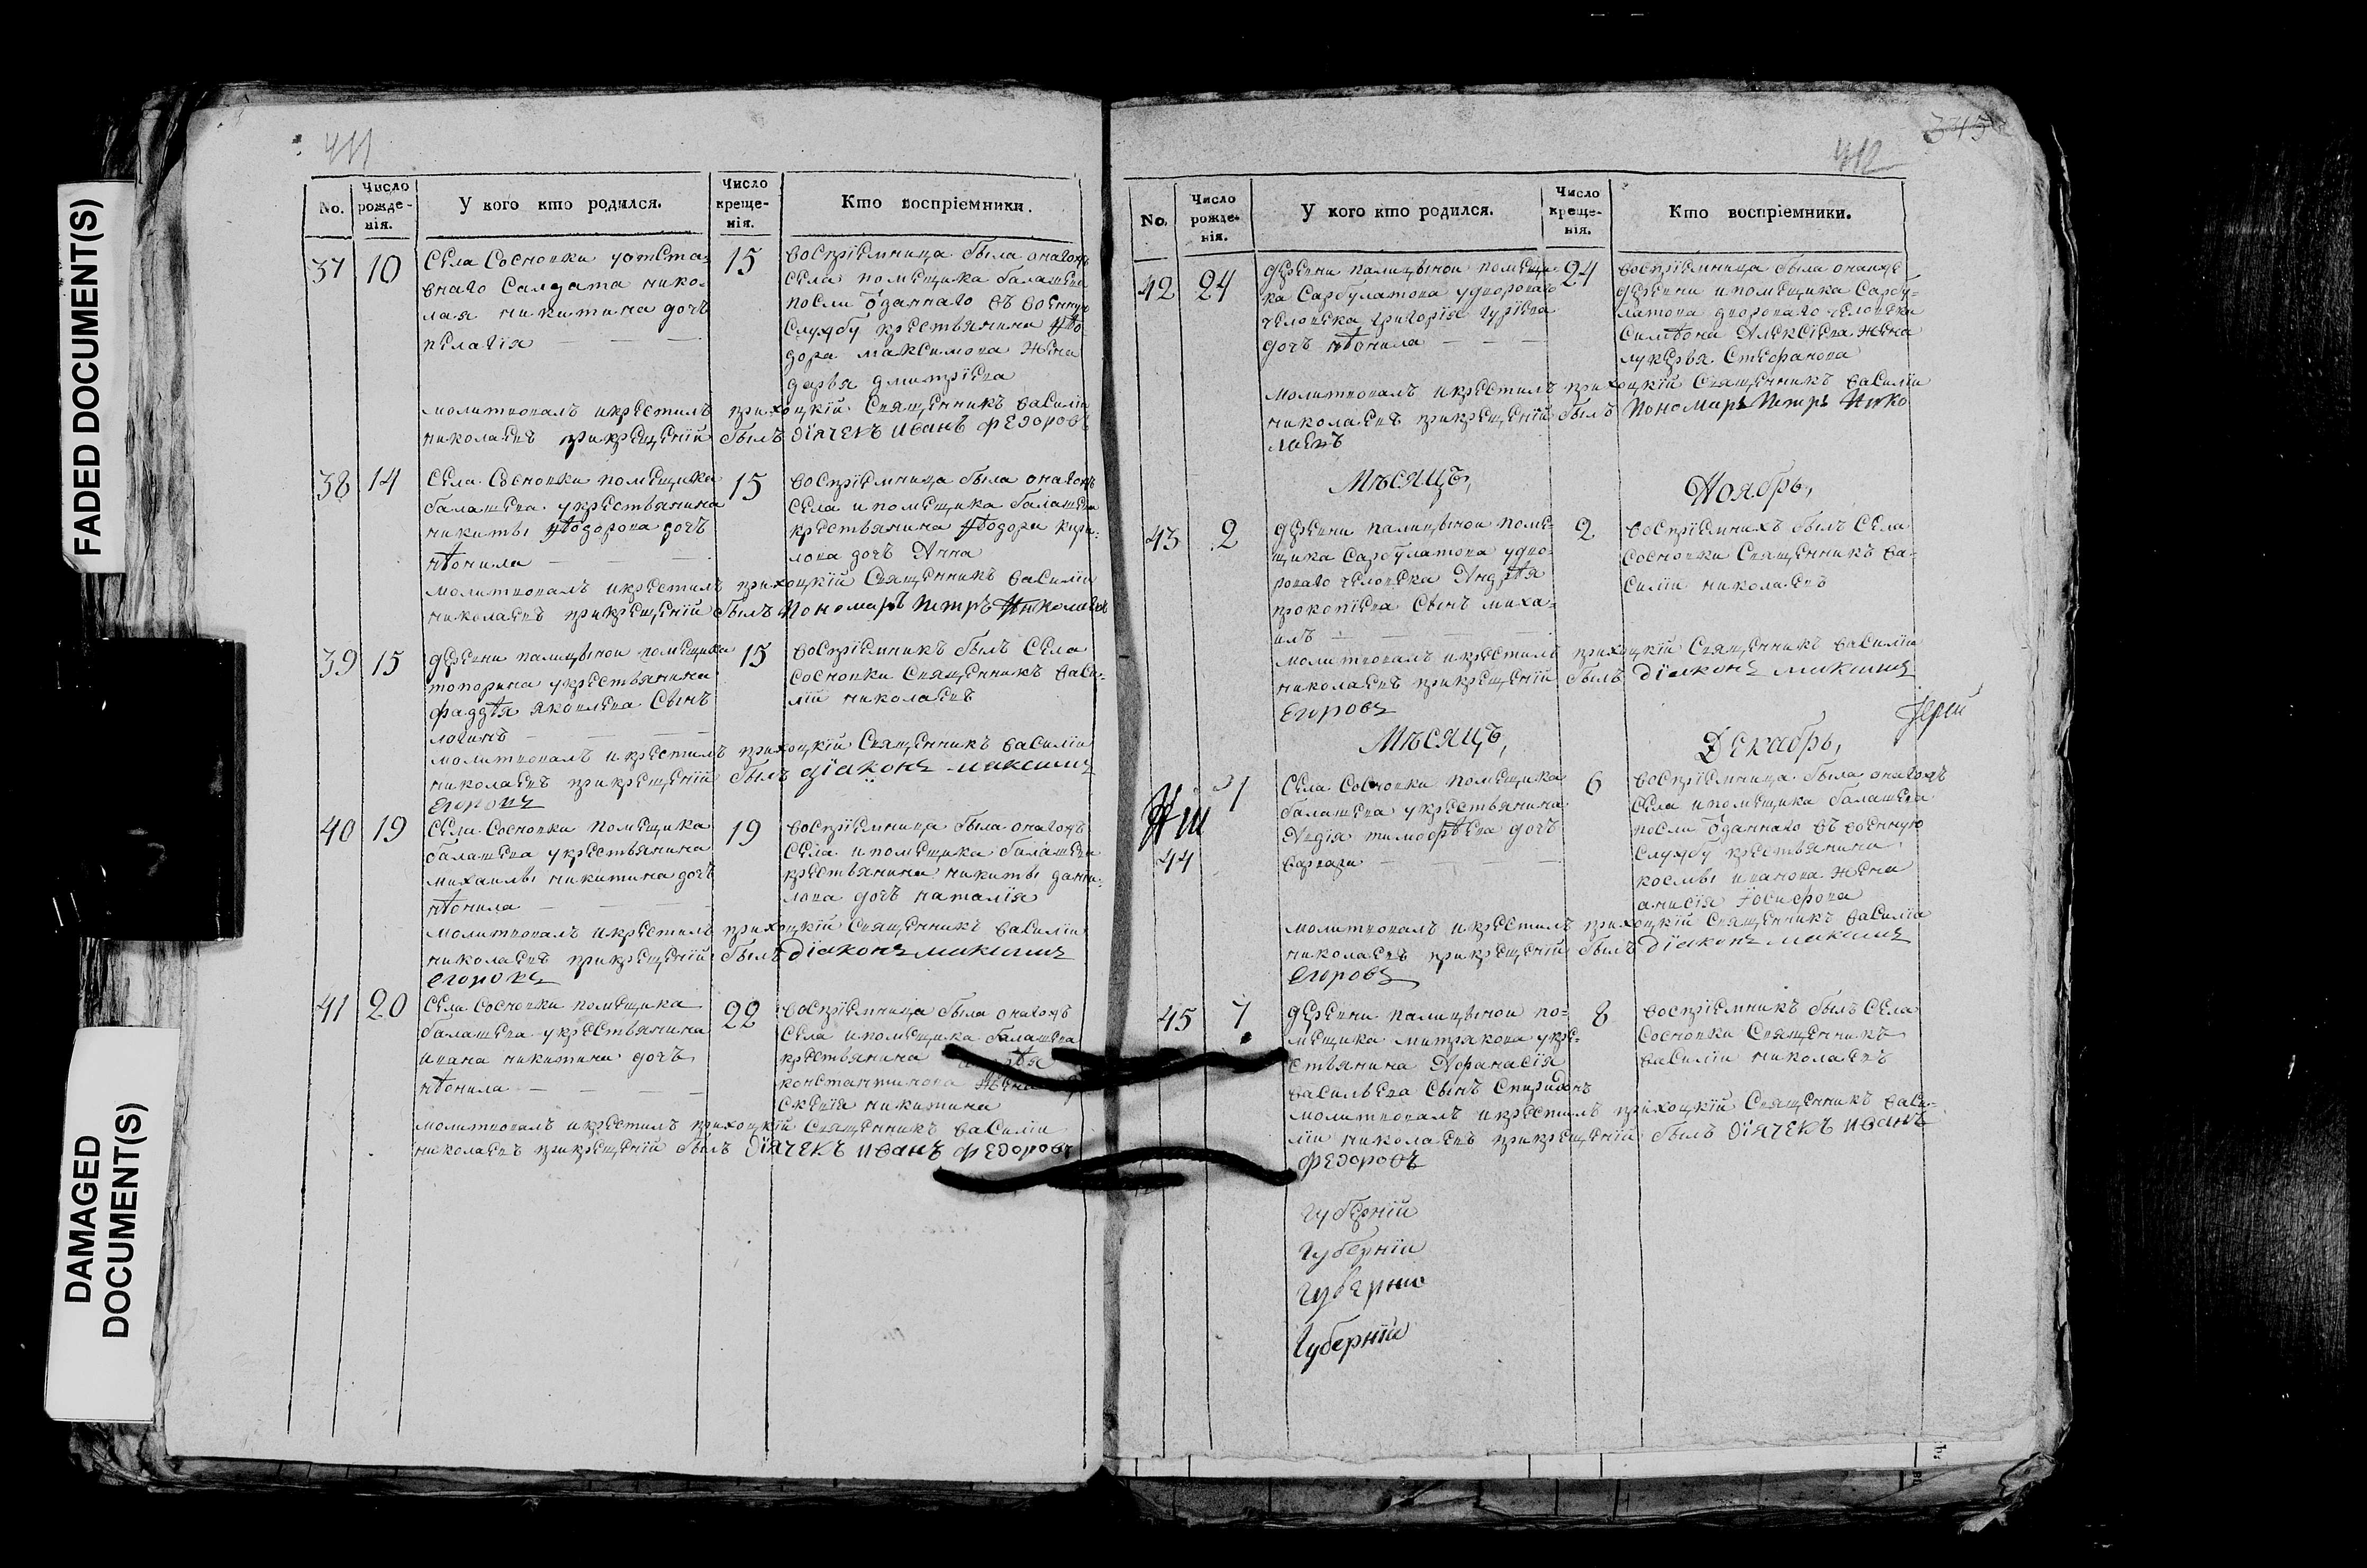 FADED DOCUMENT(S)
DAMAGED
DOCUMENT(S)
411
No.
Число
рожде-
нія.
У кого кто родился.
Число
креще-
нія.
Кто воспріемники.
37 10
села Сосновки уотста-
внаго Салдата нико-
лая никитина дочь
пелагія
15
воспріемница была онагожъ
села помещика балашева
посли ѿданнаго въ военную
службу крестьянина Ѳео
дора максимова жена
дарья дмитріева
молитвовалъ икрестилъ прихоцкій Священникъ василіи
николаевъ прикрещеній былъ дїячекъ иванъ Федоровъ
38 14
села Сосновки помещика
балашева укрестьянина
никиты Ѳеодорова дочь
неонила
15
воспріемница была онагожъ
села ипомещика балашева
крестьянина Ѳеодора кири-
лова дочь Анна
молитвовалъ икрестилъ прихоцкій Священникъ василіи
николаевъ прикрещеній былъ Пономарь Петръ Николаевъ
39 15
деревни палицыной помещика
топорина укрестьянина
фаддѣя яковлева Сынъ
логинъ
15
воспріемникъ былъ Села
сосновки Священникъ васи-
лій николаевъ
молитвовалъ икрестилъ прихоцкій Священникъ василіи
николаевъ прикрещеній былъ дїаконъ максимъ
егоровъ
40 19
села Сосновки помещика
балашева укрестьянина
михаилы никитина дочь
неонила
19
воспріемница была онагожъ
села ипомещика балашева
крестьянина никиты дани-
лова дочь наталія
молитвовалъ икрестилъ прихоцкій Священникъ василіи
николаевъ прикрещеній былъ дїаконъ максимъ
егоровъ
41 20
села Сосновки помещика
балашева укрестьянина
ивана никитина дочь
неонила
22
воспріемница была онагожъ
села ипомещика балашева
крестьянина
константинова жена
никитина
молитвовалъ икрестилъ прихоцкій Священникъ василіи
николаевъ прикрещеній былъ дїячекъ иванъ Федоровъ
345
412
No.
Число
рожде-
нія.
У кого кто родился.
Число
креще-
нія.
Кто воспріемники.
42 24
деревни палицыной помещи-
ка Сарбулатова удвороваго
человека григорія гурїева
дочь неонила
24
воспріемница была онаяже
деревни ипомещика Сарбу-
латова двороваго человека
Симеона Алексїева жена
лукерья Стефанова
молитвовалъ икрестилъ прихоцкій Священникъ василіи
николаевъ прикрещеній былъ Пономарь Петръ Нико
лаевъ
Мѣсяцъ, Ноябрь,
43 2
деревни палицыной поме-
щика Сарбулатова удво-
роваго человека Андрѣя
прокопїева Сынъ миха-
илъ
2
воспріемникъ былъ Села
Сосновки Священникъ ва-
силіи николаевъ
молитвовалъ икрестилъ прихоцкій Священникъ василіи
николаевъ прикрещеній былъ дїаконъ максимъ
Егоровъ
Іерей
Мѣсяцъ, Декабрь,
44
села Сосновки помещика
балашева укрестьянина
Авдія тимофѣева дочь
варвара
6
воспріемница была онагожъ
села ипомещика балашева
посли ѿданнаго въ военную
службу крестьянина
космы иванова жена
анисія Іосифова
молитвовалъ икрестилъ прихоцкій Священникъ василіи
николаевъ прикрещеній былъ дїаконъ максимъ
егоровъ
45 7
деревни палицыной по-
мещика митрякова укре-
стьянина Афанасія
васильева Сынъ Спиридонъ
8
воспріемникъ былъ Села
Сосновки Священникъ
василіи николаевъ
молитвовалъ икрестилъ прихоцкій Священникъ васи-
ліи николаевъ прикрещеній былъ дїячекъ иванъ
федоровъ
губерній
губерніи
губерніи
губерніи